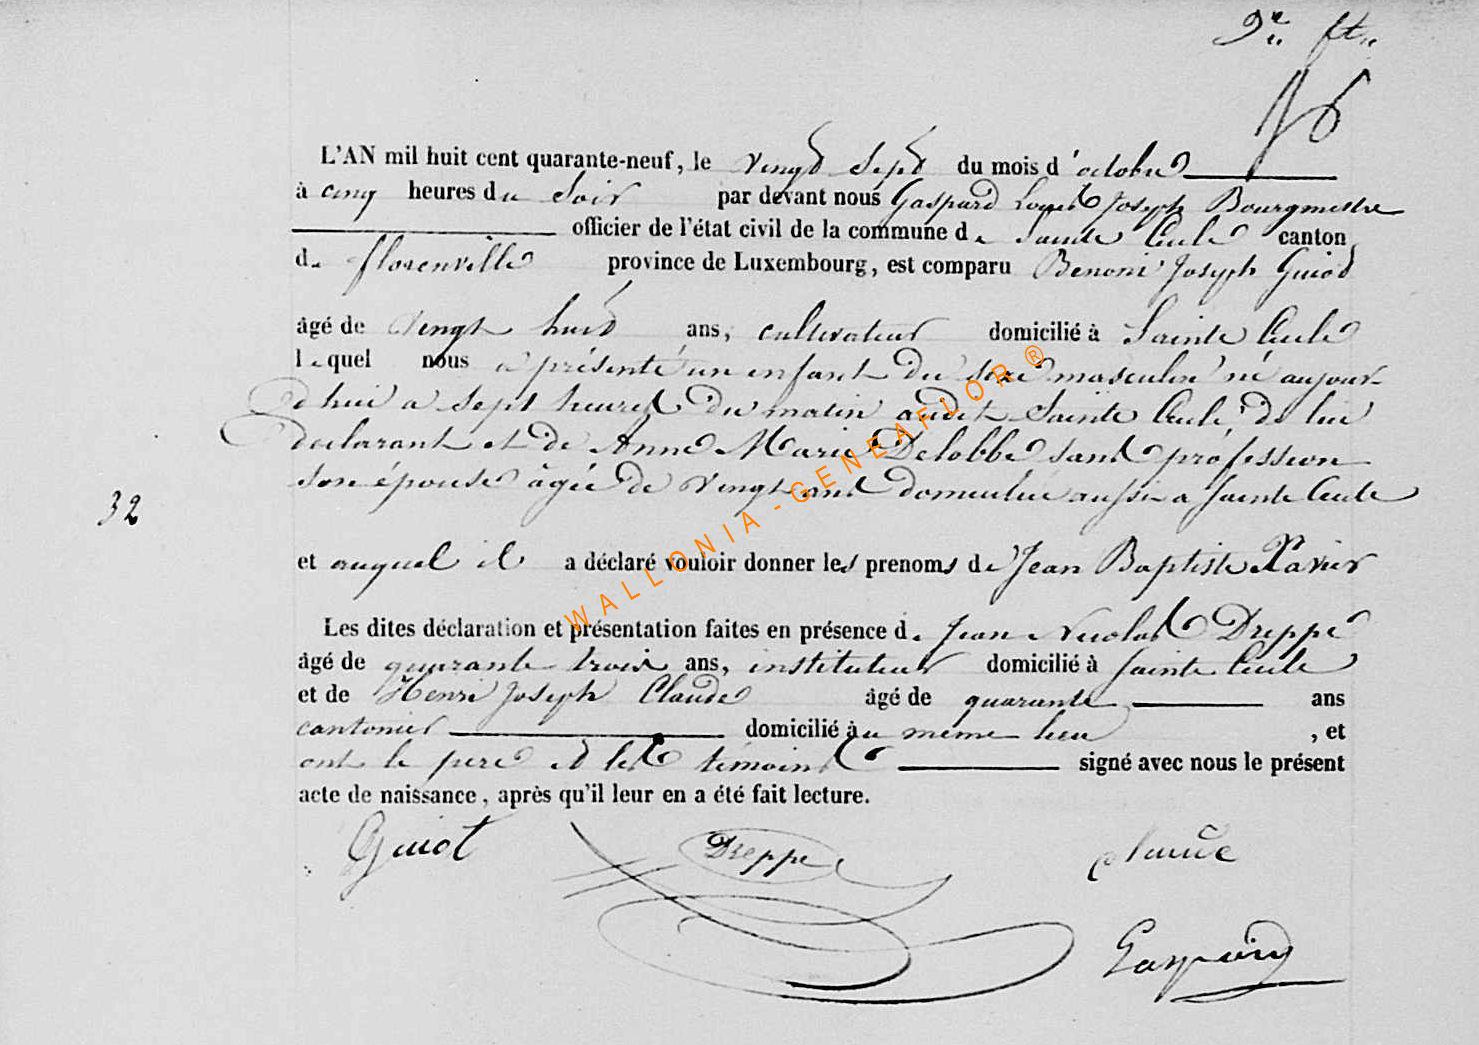 9re fte
L'AN mil huit cent quarante-neuf, le vingt sept du mois d'octobre
à cinq heures du soir par devant nous Gaspard Louis Joseph Bourgmestre
officier de l'état civil de la commune de Sainte Cecile canton
de florenville province de Luxembourg, est comparu Benoni Joseph Guiot
âgé de vingt huit ans, cultivateur domicilié à Sainte Cecile
lequel nous a présenté un enfant du sexe masculin né aujour
d'hui a sept heures du matin audit Sainte Cecile, de lui
declarant et de Anne Marie Delobbe sans profession
son épouse âgée de vingt ans domiciliée aussi a Sainte Cecile
32
et auquel il a déclaré vouloir donner les prenoms de Jean Baptiste Xavier
Les dites déclaration et présentation faites en présence de Jean Nicolas Dreppe
âgé de quarante trois ans, instituteur domicilié à Sainte Cecile
et de Henri Joseph Claude âgé de quarante ans
cantonier domicilié au même lieu , et
ont le pere et les témoins signé avec nous le présent
acte de naissance, après qu'il leur en a été fait lecture.
Guiot Dreppe Claude
Gaspard
WALLONIA-GENEAFLOR®